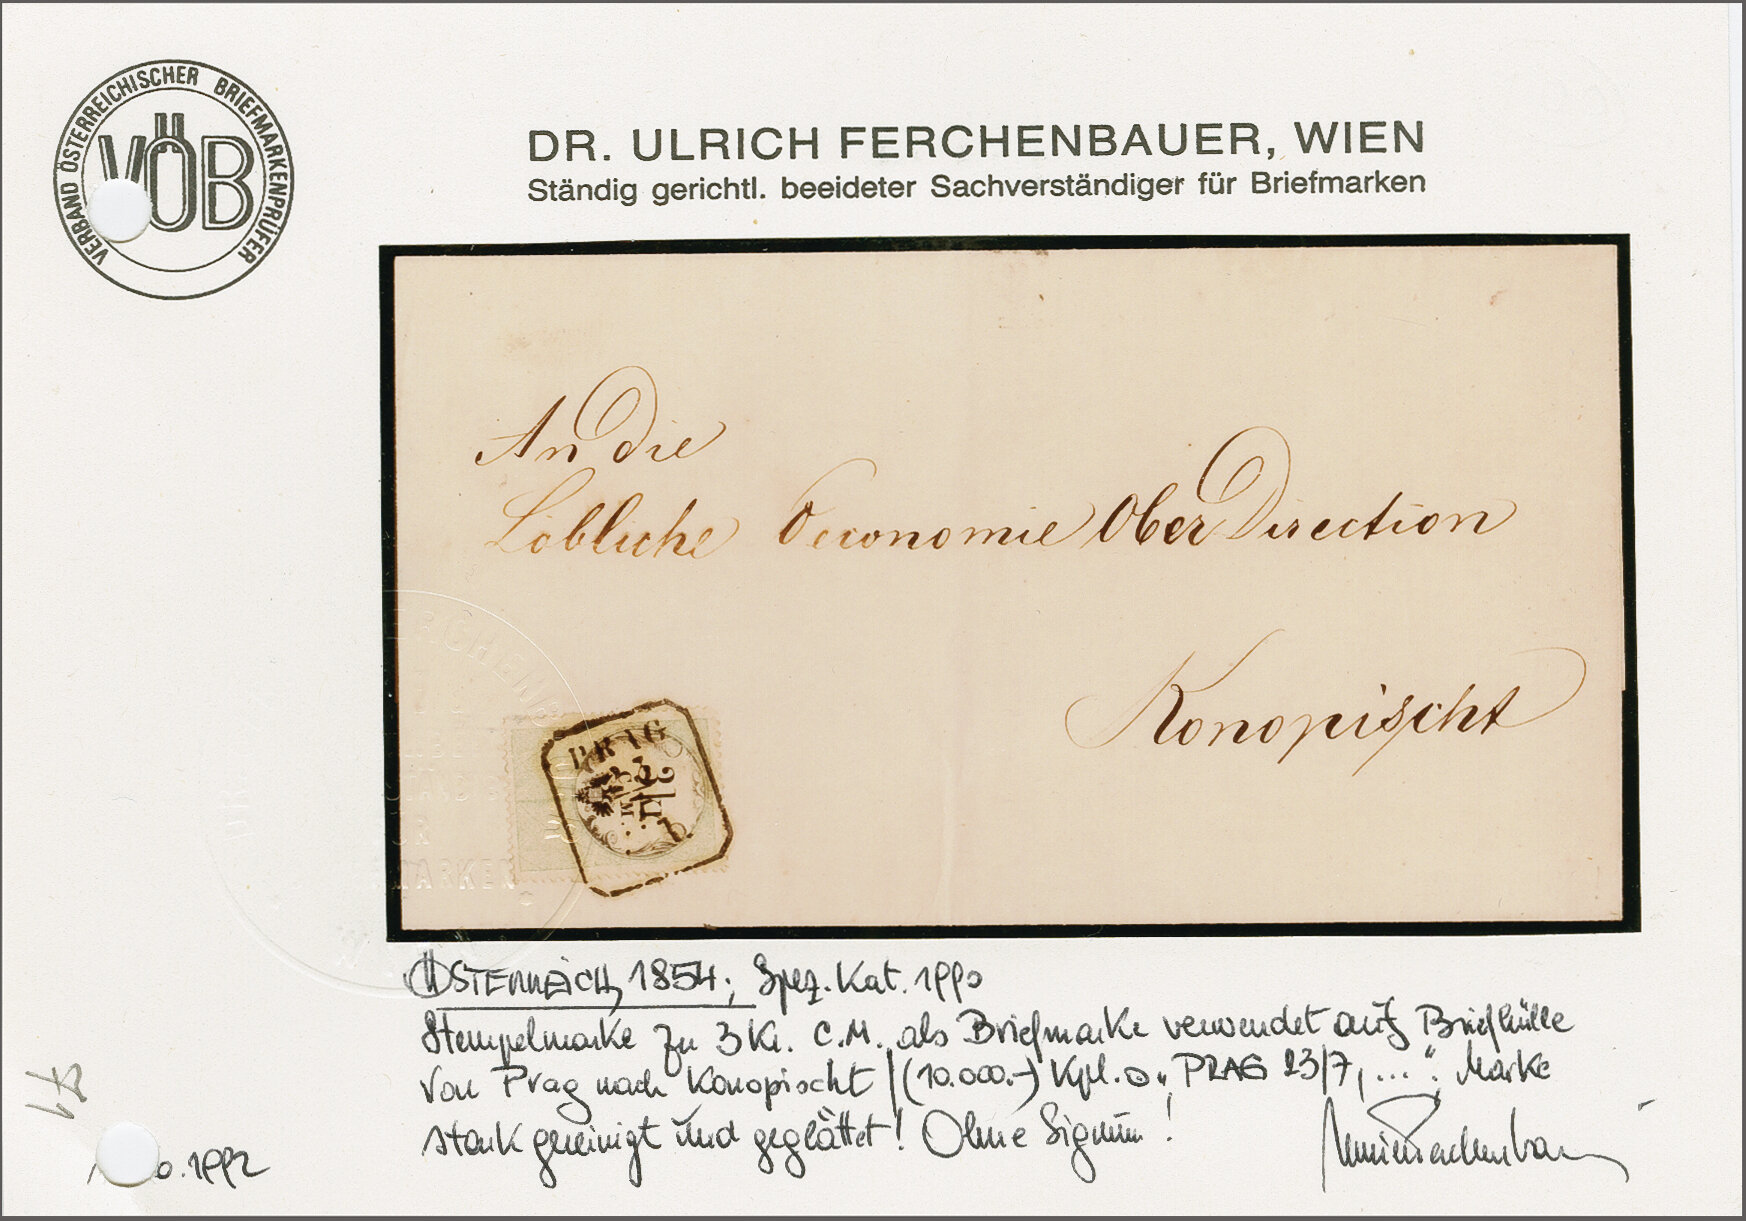 VERBAND ÖSTERREICHISCHER BRIEFMARKENPRÜFER
VÖB
DR. ULRICH FERCHENBAUER, WIEN
Ständig gerichtl. beeideter Sachverständiger für Briefmarken
An die
Löbliche Oeconomie Ober Direction
Konopischt
PRAG
23
7
ÖSTERREICH, 1854; Spez. Kat. 1990
Stempelmarke zu 3 Kr. C.M. als Briefmarke verwendet auf Briefhülle
von Prag nach Konopischt / (10.000.-) Kpl. o „PRAG 23/7, ...". Marke
stark gereinigt und geglättet! Ohne Signum!
0.1992